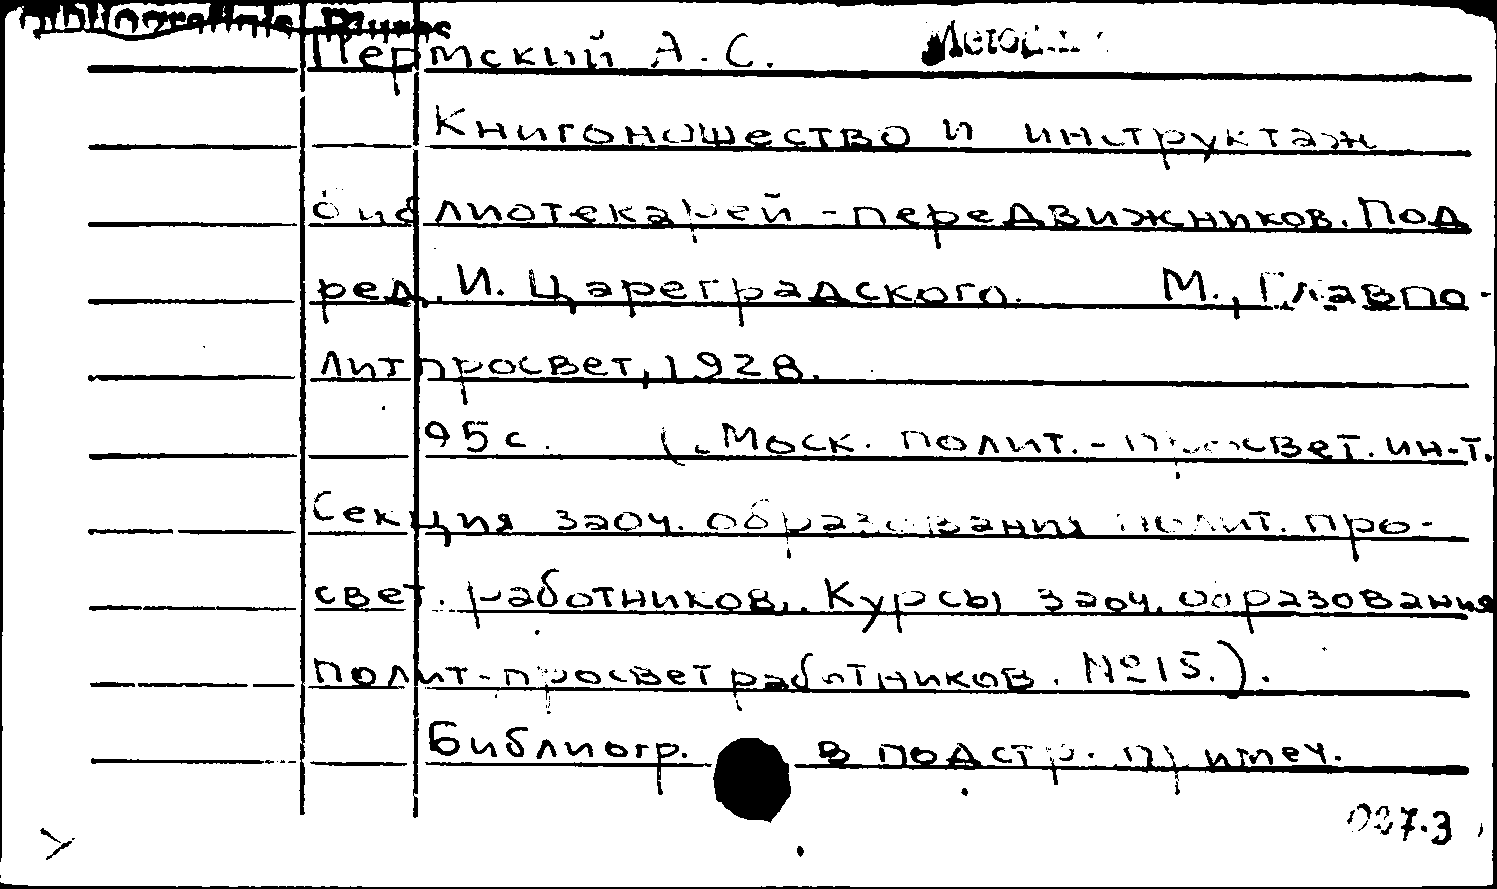 Пермский А.С.
Книгоношество и инструктаж
библиотекарей-передвижников. Под
ред. И. Цареградского. М., Главпо-
литпросвет, 1928.
95 с. (Моск. полит.-просвет. ин-т.
Секция заоч. образования полит. про-
свет. работников. Курсы заоч. образования
полит-просвет работников. №15.).
Библиогр. в подстр. примеч.